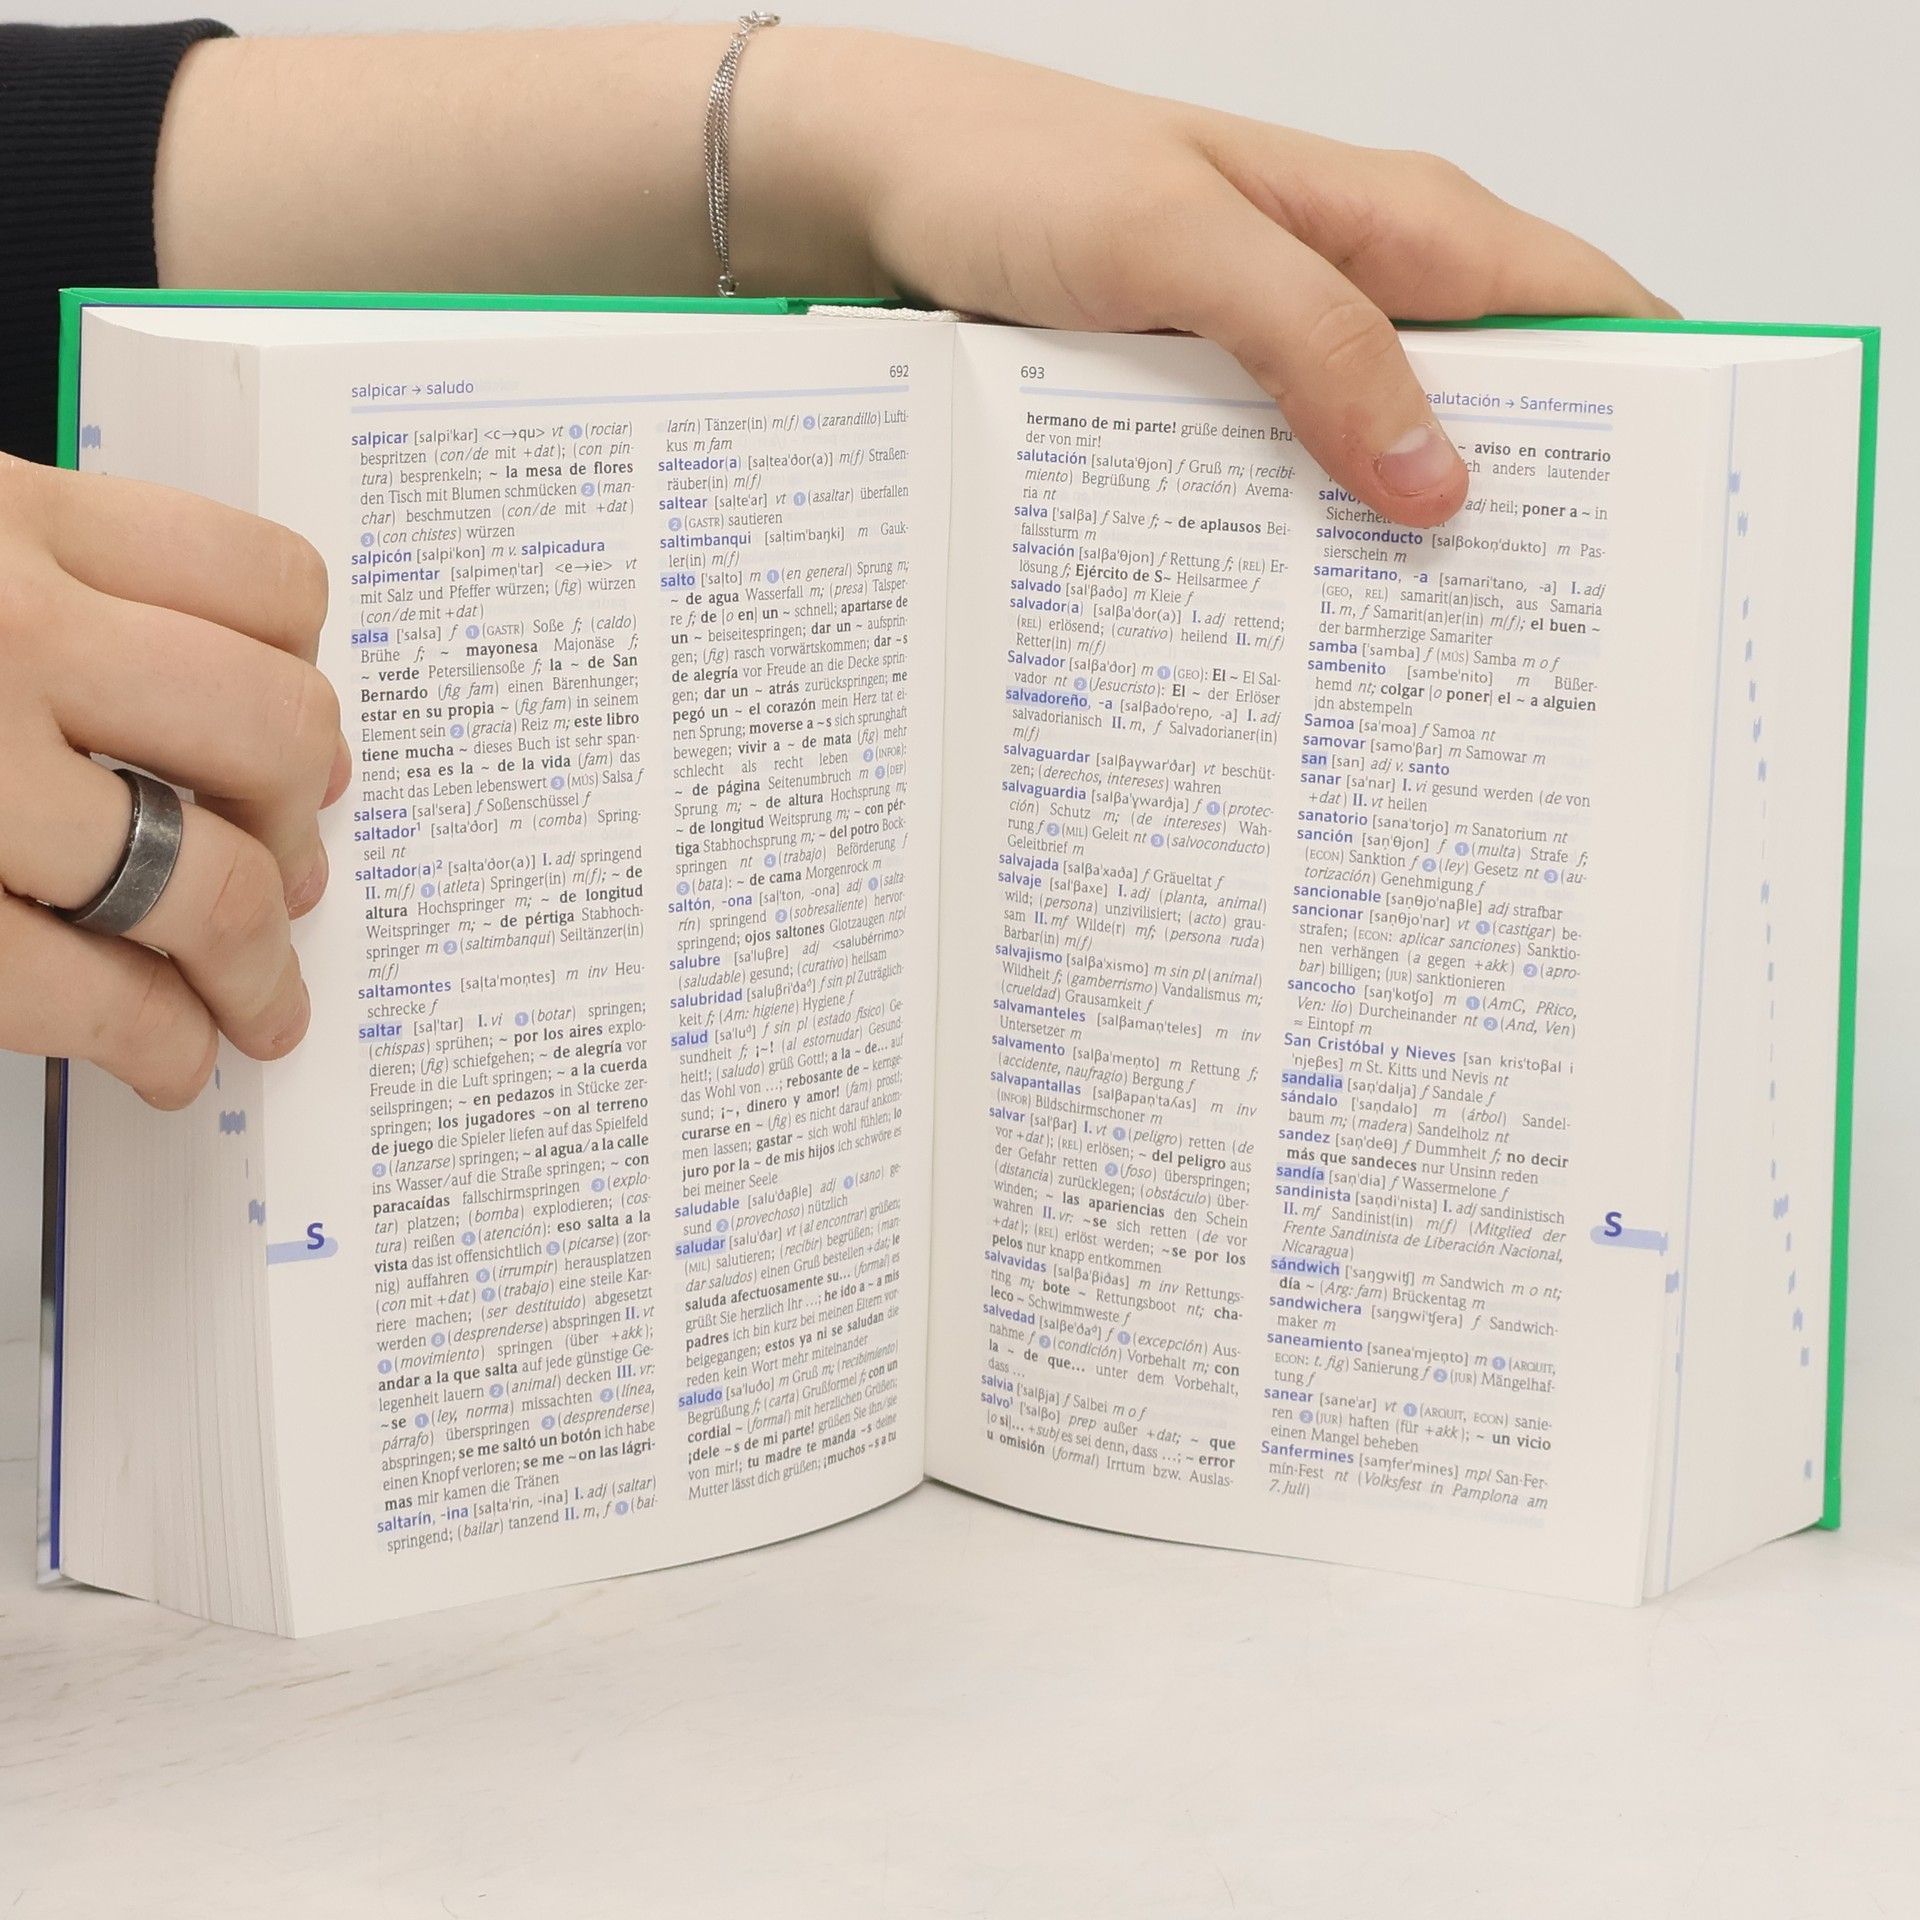 salpicar → saludo
692
salpicar [salpi'kar] <c→qu> vt ❶ (rociar)
bespritzen (con/de mit +dat); (con pin-
tura) besprenkeln; ~ la mesa de flores
den Tisch mit Blumen schmücken ❷ (man-
char) beschmutzen (con/de mit +dat)
❸ (con chistes) würzen
salpicón [salpi'kon] m v. salpicadura
salpimentar [salpimen̩'tar] <e→ie> vt
mit Salz und Pfeffer würzen; (fig) würzen
(con/de mit +dat)
salsa ['salsa] f ❶ (GASTR) Soße f; (caldo)
Brühe f; ~ mayonesa Majonäse f;
~ verde Petersiliensoße f; la ~ de San
Bernardo (fig fam) einen Bärenhunger;
estar en su propia ~ (fig fam) in seinem
Element sein ❷ (gracia) Reiz m; este libro
tiene mucha ~ dieses Buch ist sehr span-
nend; esa es la ~ de la vida (fam) das
macht das Leben lebenswert ❸ (MÚS) Salsa f
salsera [sal'sera] f Soßenschüssel f
saltador¹ [sal̩ta'ðor] m (comba) Spring-
seil nt
saltador(a)² [sal̩ta'ðor(a)] I. adj springend
II. m(f) ❶ (atleta) Springer(in) m(f); ~ de
altura Hochspringer m; ~ de longitud
Weitspringer m; ~ de pértiga Stabhoch-
springer m ❷ (saltimbanqui) Seiltänzer(in)
m(f)
saltamontes [sal̩ta'mon̩tes] m inv Heu-
schrecke f
saltar [sal̩'tar] I. vi ❶ (botar) springen;
(chispas) sprühen; ~ por los aires explo-
dieren; (fig) schiefgehen; ~ de alegría vor
Freude in die Luft springen; ~ a la cuerda
seilspringen; ~ en pedazos in Stücke zer-
springen; los jugadores ~on al terreno
de juego die Spieler liefen auf das Spielfeld
❷ (lanzarse) springen; ~ al agua/a la calle
ins Wasser/auf die Straße springen; ~ con
paracaídas fallschirmspringen ❸ (explo-
tar) platzen; (bomba) explodieren; (cos-
tura) reißen ❹ (atención): eso salta a la
vista das ist offensichtlich ❺ (picarse) (zor-
nig) auffahren ❻ (irrumpir) herausplatzen
(con mit +dat) ❼ (trabajo) eine steile Kar-
riere machen; (ser destituido) abgesetzt
werden ❽ (desprenderse) abspringen II. vt
❶ (movimiento) springen (über +akk);
andar a la que salta auf jede günstige Ge-
legenheit lauern ❷ (animal) decken III. vr:
~se ❶ (ley, norma) missachten ❷ (línea,
párrafo) überspringen ❸ (desprenderse)
abspringen; se me saltó un botón ich habe
einen Knopf verloren; se me ~on las lágri-
mas mir kamen die Tränen
saltarín, -ina [sal̩ta'rin, -ina] I. adj (saltar)
springend; (bailar) tanzend II. m, f ❶ (bai-
larín) Tänzer(in) m(f) ❷ (zarandillo) Lufti-
kus m fam
salteador(a) [sal̩tea'ðor(a)] m(f) Straßen-
räuber(in) m(f)
saltear [sal̩te'ar] vt ❶ (asaltar) überfallen
❷ (GASTR) sautieren
saltimbanqui [sal̩tim'baŋki] m Gauk-
ler(in) m(f)
salto ['sal̩to] m ❶ (en general) Sprung m;
~ de agua Wasserfall m; (presa) Talsper-
re f; de [o en] un ~ schnell; apartarse de
un ~ beiseitespringen; dar un ~ aufsprin-
gen; (fig) rasch vorwärtskommen; dar ~s
de alegría vor Freude an die Decke sprin-
gen; dar un ~ atrás zurückspringen; me
pegó un ~ el corazón mein Herz tat ei-
nen Sprung; moverse a ~s sich sprunghaft
bewegen; vivir a ~ de mata (fig) mehr
schlecht als recht leben ❷ (INFOR):
~ de página Seitenumbruch m ❸ (DEP)
Sprung m; ~ de altura Hochsprung m;
~ de longitud Weitsprung m; ~ con pér-
tiga Stabhochsprung m; ~ del potro Bock-
springen nt ❹ (trabajo) Beförderung f
❺ (bata): ~ de cama Morgenrock m
saltón, -ona [sal̩'ton, -ona] adj ❶ (salta-
rín) springend ❷ (sobresaliente) hervor-
springend; ojos saltones Glotzaugen ntpl
salubre [sa'luβre] adj <salubérrimo>
(saludable) gesund; (curativo) heilsam
salubridad [saluβri'ðaᵟ] f sin pl Zuträglich-
keit f; (Am: higiene) Hygiene f
salud [sa'luᵟ] f sin pl (estado físico) Ge-
sundheit f; ¡~! (al estornudar) Gesund-
heit!; (saludo) grüß Gott!; a la ~ de... auf
das Wohl von ...; rebosante de ~ kernge-
sund; ¡~, dinero y amor! (fam) prost!;
curarse en ~ (fig) es nicht darauf ankom-
men lassen; gastar ~ sich wohl fühlen; lo
juro por la ~ de mis hijos ich schwöre es
bei meiner Seele
saludable [salu'ðaβle] adj ❶ (sano) ge-
sund ❷ (provechoso) nützlich
saludar [salu'ðar] vt (al encontrar) grüßen;
(MIL) salutieren; (recibir) begrüßen; (man-
dar saludos) einen Gruß bestellen +dat; le
saluda afectuosamente su... (formal) es
grüßt Sie herzlich Ihr ...; he ido a ~ a mis
padres ich bin kurz bei meinen Eltern vor-
beigegangen; estos ya ni se saludan die
reden kein Wort mehr miteinander
saludo [sa'luðo] m Gruß m; (recibimiento)
Begrüßung f; (carta) Grußformel f; con un
cordial ~ (formal) mit herzlichen Grüßen;
¡dele ~s de mi parte! grüßen Sie ihn/sie
von mir!; tu madre te manda ~s deine
Mutter lässt dich grüßen; ¡muchos ~s a tu
S
693
salutación → Sanfermines
hermano de mi parte! grüße deinen Bru-
der von mir!
salutación [saluta'θjon] f Gruß m; (recibi-
miento) Begrüßung f; (oración) Avema-
ria nt
salva ['salβa] f Salve f; ~ de aplausos Bei-
fallssturm m
salvación [salβa'θjon] f Rettung f; (REL) Er-
lösung f; Ejército de S~ Heilsarmee f
salvado [sal'βaðo] m Kleie f
salvador(a) [salβa'ðor(a)] I. adj rettend;
(REL) erlösend; (curativo) heilend II. m(f)
Retter(in) m(f)
Salvador [salβa'ðor] m ❶ (GEO): El ~ El Sal-
vador nt ❷ (Jesucristo): El ~ der Erlöser
salvadoreño, -a [salβaðo'reɲo, -a] I. adj
salvadorianisch II. m, f Salvadorianer(in)
m(f)
salvaguardar [salβaɣwar'ðar] vt beschüt-
zen; (derechos, intereses) wahren
salvaguardia [salβa'ɣwarðja] f ❶ (protec-
ción) Schutz m; (de intereses) Wah-
rung f ❷ (MIL) Geleit nt ❸ (salvoconducto)
Geleitbrief m
salvajada [salβa'xaða] f Gräueltat f
salvaje [sal'βaxe] I. adj (planta, animal)
wild; (persona) unzivilisiert; (acto) grau-
sam II. mf Wilde(r) mf; (persona ruda)
Barbar(in) m(f)
salvajismo [salβa'xismo] m sin pl (animal)
Wildheit f; (gamberrismo) Vandalismus m;
(crueldad) Grausamkeit f
salvamanteles [salβaman̩'teles] m inv
Untersetzer m
salvamento [salβa'men̩to] m Rettung f;
(accidente, naufragio) Bergung f
salvapantallas [salβapan̩'taʎas] m inv
(INFOR) Bildschirmschoner m
salvar [sal'βar] I. vt ❶ (peligro) retten (de
vor +dat); (REL) erlösen; ~ del peligro aus
der Gefahr retten ❷ (foso) überspringen;
(distancia) zurücklegen; (obstáculo) über-
winden; ~ las apariencias den Schein
wahren II. vr: ~se sich retten (de vor
+dat); (REL) erlöst werden; ~se por los
pelos nur knapp entkommen
salvavidas [salβa'βiðas] m inv Rettungs-
ring m; bote ~ Rettungsboot nt; cha-
leco ~ Schwimmweste f
salvedad [salβe'ðaᵟ] f ❶ (excepción) Aus-
nahme f ❷ (condición) Vorbehalt m; con
la ~ de que... unter dem Vorbehalt,
dass ...
salvia ['salβja] f Salbei m o f
salvo¹ ['salβo] prep außer +dat; ~ que
[o si]... +subj es sei denn, dass ...; ~ error
u omisión (formal) Irrtum bzw. Auslas-
~ aviso en contrario
ch anders lautender
salvo, adj heil; poner a ~ in
Sicherheit
salvoconducto [salβokon̩'dukto] m Pas-
sierschein m
samaritano, -a [samari'tano, -a] I. adj
(GEO, REL) samarit(an)isch, aus Samaria
II. m, f Samarit(an)er(in) m(f); el buen ~
der barmherzige Samariter
samba ['samba] f (MÚS) Samba m o f
sambenito [sambe'nito] m Büßer-
hemd nt; colgar [o poner] el ~ a alguien
jdn abstempeln
Samoa [sa'moa] f Samoa nt
samovar [samo'βar] m Samowar m
san [san] adj v. santo
sanar [sa'nar] I. vi gesund werden (de von
+dat) II. vt heilen
sanatorio [sana'torjo] m Sanatorium nt
sanción [san̟'θjon] f ❶ (multa) Strafe f;
(ECON) Sanktion f ❷ (ley) Gesetz nt ❸ (au-
torización) Genehmigung f
sancionable [san̟θjo'naβle] adj strafbar
sancionar [san̟θjo'nar] vt ❶ (castigar) be-
strafen; (ECON: aplicar sanciones) Sanktio-
nen verhängen (a gegen +akk) ❷ (apro-
bar) billigen; (JUR) sanktionieren
sancocho [saɲ'koʧo] m ❶ (AmC, PRico,
Ven: lío) Durcheinander nt ❷ (And, Ven)
≈ Eintopf m
San Cristóbal y Nieves [san kris'toβal i
'njeβes] m St. Kitts und Nevis nt
sandalia [san̩'dalja] f Sandale f
sándalo ['san̩dalo] m (árbol) Sandel-
baum m; (madera) Sandelholz nt
sandez [san̩'deθ] f Dummheit f; no decir
más que sandeces nur Unsinn reden
sandía [san̩'dia] f Wassermelone f
sandinista [san̩di'nista] I. adj sandinistisch
II. mf Sandinist(in) m(f) (Mitglied der
Frente Sandinista de Liberación Nacional,
Nicaragua)
sándwich ['saŋgwiʧ] m Sandwich m o nt;
día ~ (Arg: fam) Brückentag m
sandwichera [saŋgwi'ʧera] f Sandwich-
maker m
saneamiento [sanea'mjen̩to] m ❶ (ARQUIT,
ECON: t. fig) Sanierung f ❷ (JUR) Mängelhaf-
tung f
sanear [sane'ar] vt ❶ (ARQUIT, ECON) sanie-
ren ❷ (JUR) haften (für +akk); ~ un vicio
einen Mangel beheben
Sanfermines [saɱfer'mines] mpl San-Fer-
mín-Fest nt (Volksfest in Pamplona am
7. Juli)
S